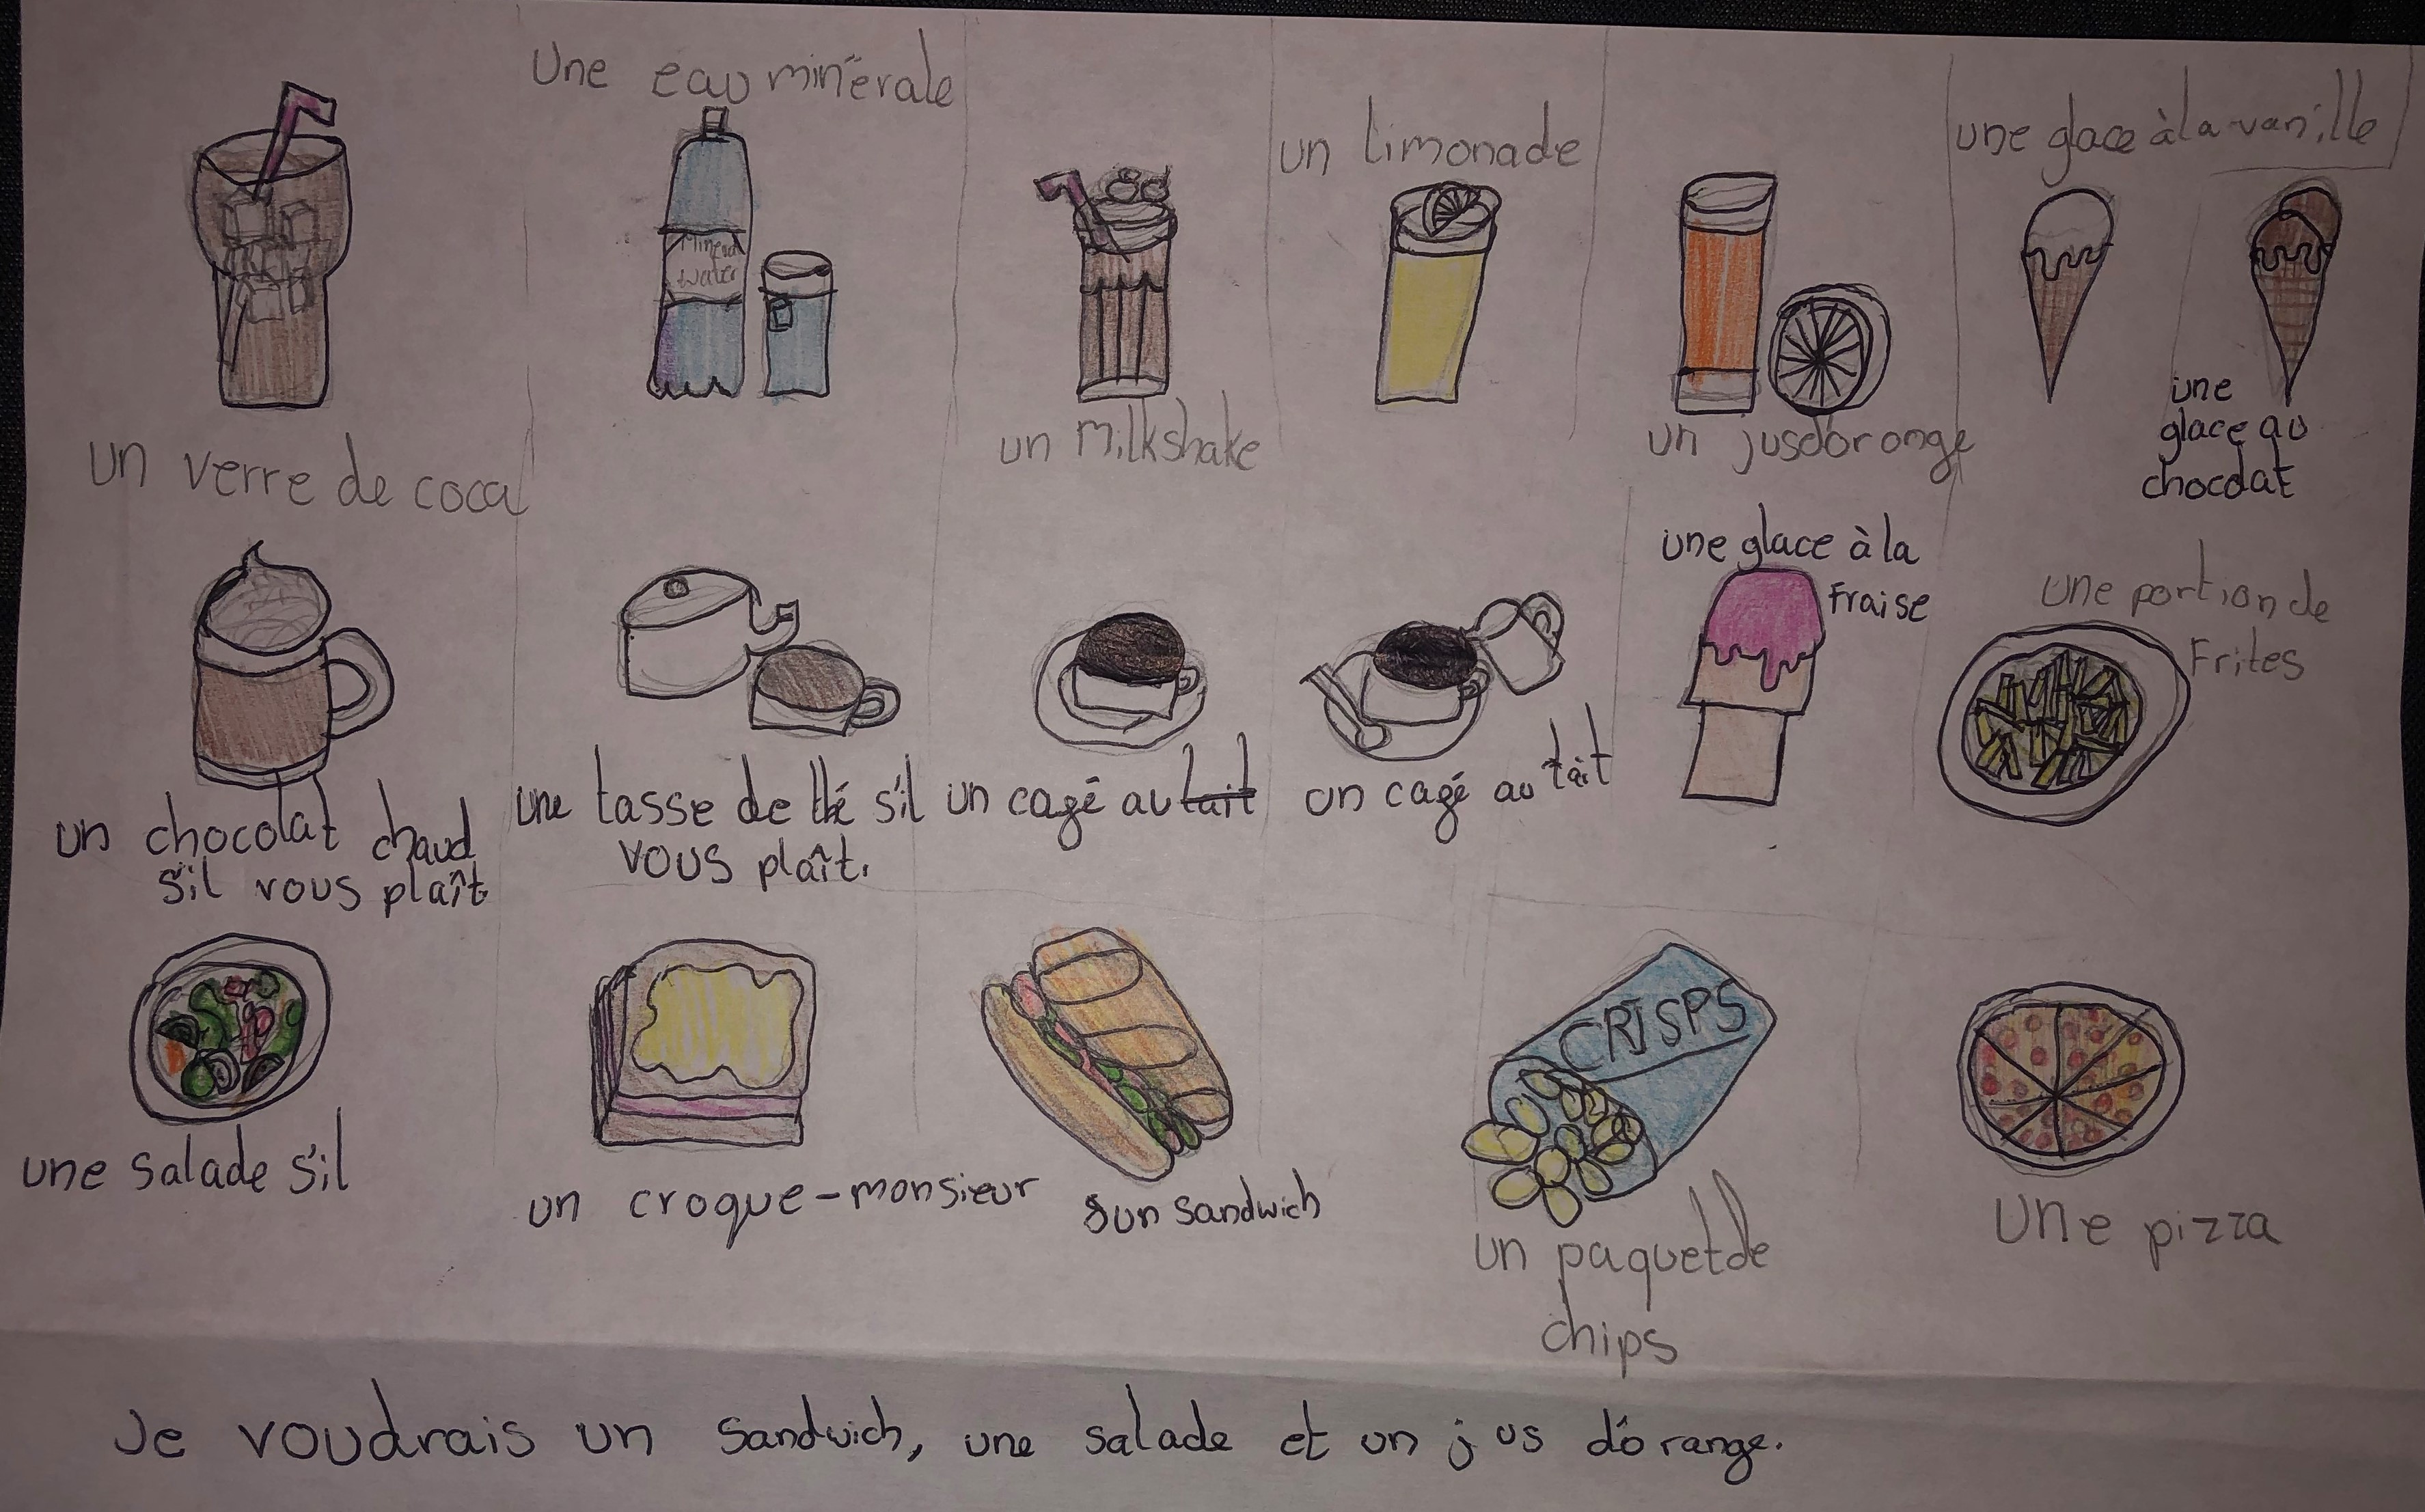 Une eau minérale
un limonade
une glace à la vanille
Mineral
Water
un verre de coca
un Milkshake
un jusdorange
une
glace au
chocolat
une glace à la
Fraise
une portion de
Frites
un chocolat chaud
s'il vous plaît
une tasse de thé s'il
vous plaît.
un cagé au lait
un cagé au lait
CRISPS
une salade s'il
un croque-monsieur
un sandwich
un paquet de
chips
Une pizza
Je voudrais un sandwich, une salade et un jus d'orange.